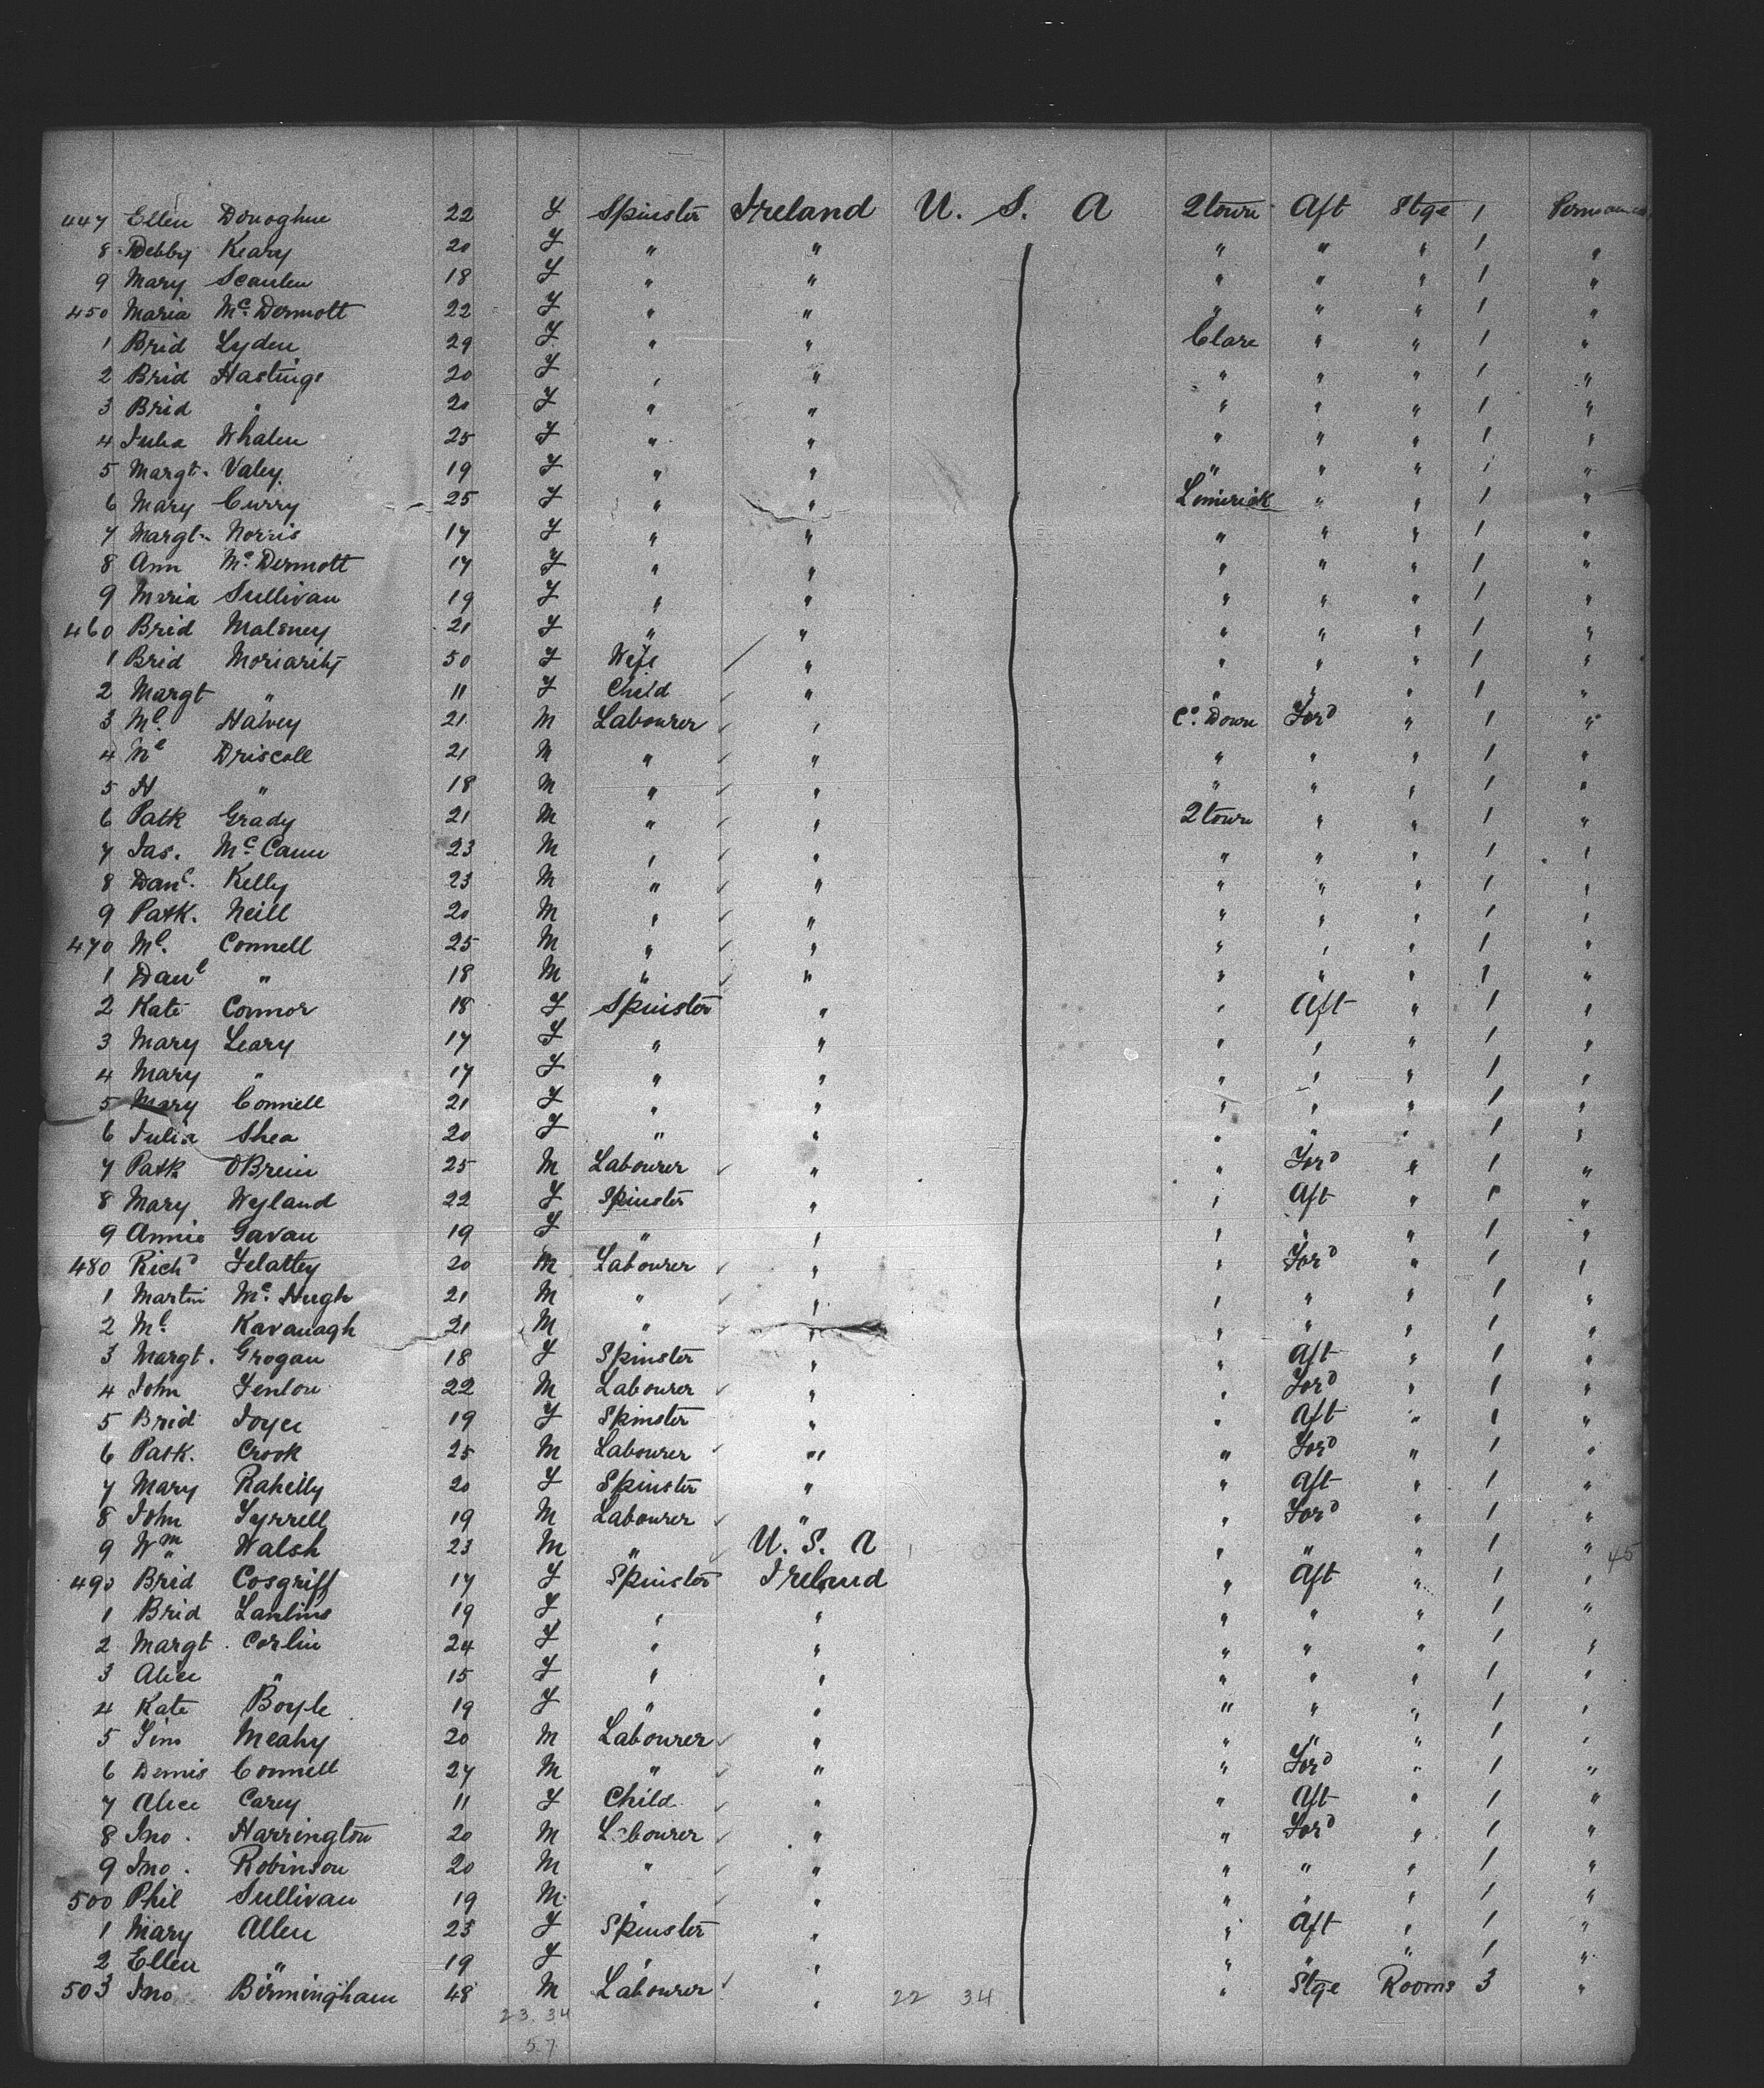 447 Ellen Donoghue 22 F Spinster Ireland U. S. A Qtown Aft Stge 1
8 Debby Keary 20 F " " " " " 1 "
9 Mary Scanlen 18 F " " " " " 1 "
450 Maria Mc. Dermott 22 F " " " " " 1 "
1 Brid Lyden 29 F " " Clare " " 1 "
2 Brid Hastings 20 F " " " " " 1 "
3 Brid " 20 F " " " " " 1 "
4 Julia Whalen 25 F " " " " " 1 "
5 Margt. Valey 19 F " " " " " 1 "
6 Mary Curry 25 F " " Limerick " " 1 "
7 Margt. Norris 17 F " " " " " 1 "
8 Ann Mc. Dermott 17 F " " " " " 1 "
9 Maria Sullivan 19 F " " " " " 1 "
460 Brid Maloney 21 F " " " " " 1 "
1 Brid Moriarity 50 F Wife " " " " 1 "
2 Margt " 11 F Child " " " " 1 "
3 Ml. Halvey 21 M Labourer " Co. Down Ford " 1 "
4 Ml Driscoll 21 M " " " " " 1 "
5 H " 18 M " " " " " 1 "
6 Patk Grady 21 M " " Qtown " " 1 "
7 Jas. Mc. Cann 23 M " " " " " 1 "
8 Danl. Kelly 23 M " " " " " 1 "
9 Patk. Neill 20 M " " " " " 1 "
470 Ml. Connell 25 M " " " " " 1 "
1 Danl " 18 M " " " " " 1 "
2 Kate Connor 18 F Spinster " " Aft " 1 "
3 Mary Leary 17 F " " " " " 1 "
4 Mary " 17 F " " " " " 1 "
5 Mary Connell 21 F " " " " " 1 "
6 Julia Shea 20 F " " " " " 1 "
7 Patk OBrein 25 M Labourer " " Ford " 1 "
8 Mary Wyland 22 F Spinster " " Aft " 1 "
9 Annie Gavan 19 F " " " " " 1 "
480 Richd Felattey 20 M Labourer " " Ford " 1 "
1 Martin Mc. Hugh 21 M " " " " " 1 "
2 Ml. Kavanagh 21 M " " " " " 1 "
3 Margt. Grogan 18 F Spinster " " Aft " 1 "
4 John Fenlon 22 M Labourer " " Ford " 1 "
5 Brid Joyce 19 F Spinster " " Aft " 1 "
6 Patk. Crook 25 M Labourer " " Ford " 1 "
7 Mary Rahelly 20 F Spinster " " Aft " 1 "
8 John Tyrrell 19 M Labourer " " Ford " 1 "
9 Wm Walsh 23 M " U. S. A " " " 1 " 45
490 Brid Cosgriff 17 F Spinster Ireland " Aft " 1 "
1 Brid 19 F " " " " " 1 "
2 Margt. Corlin 24 F " " " " " 1 "
3 Alice " 15 F " " " " " 1 "
4 Kate Boyle 19 F " " " " " 1 "
5 Tim Meahy 20 M Labourer " " " " 1 "
6 Dennis Connell 27 M " " " Ford " 1 "
7 Alice Carey 11 F Child " " Aft " 1 "
8 Jno. Harrington 20 M Labourer " " Ford " 1 "
9 Jno. Robinson 20 M " " " " " 1 "
500 Phil Sullivan 19 M " " " " " 1 "
1 Mary Allen 23 F Spinster " " Aft " 1 "
2 Ellen " 19 F " " " " " 1 "
503 Jno Birmingham 48 M Labourer " " Stge Rooms 3 "
23. 34 22 34
57